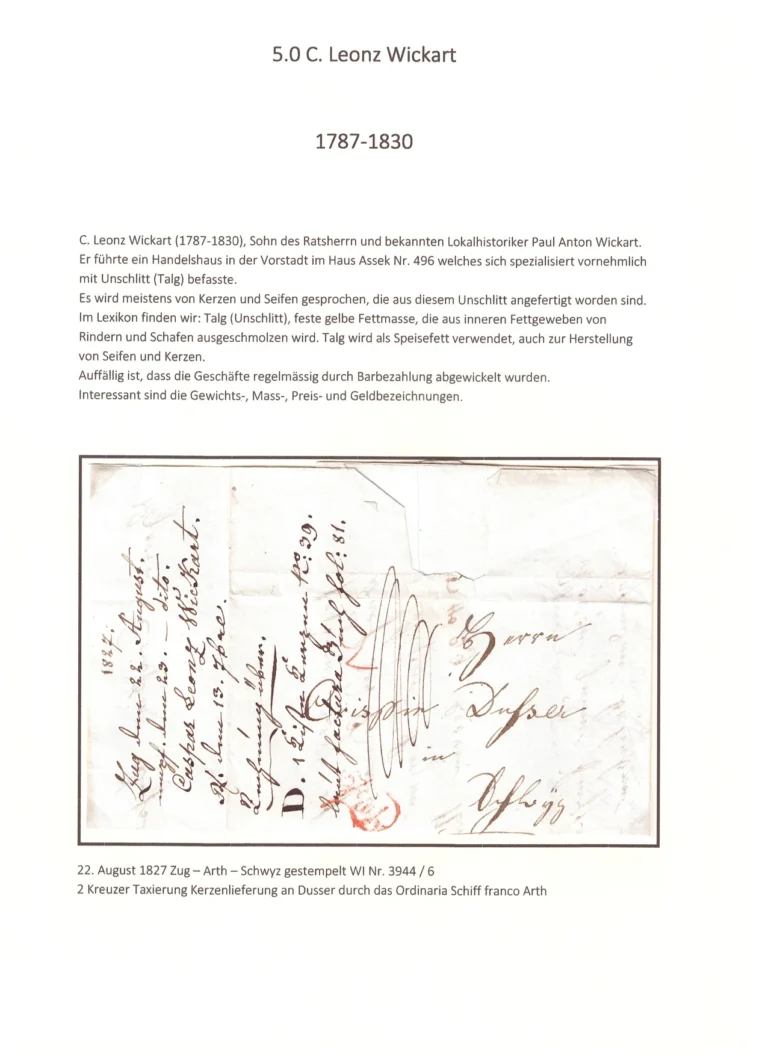 5.0 C. Leonz Wickart
1787-1830
C. Leonz Wickart (1787-1830), Sohn des Ratsherrn und bekannten Lokalhistoriker Paul Anton Wickart.
Er führte ein Handelshaus in der Vorstadt im Haus Assek Nr. 496 welches sich spezialisiert vornehmlich
mit Unschlitt (Talg) befasste.
Es wird meistens von Kerzen und Seifen gesprochen, die aus diesem Unschlitt angefertigt worden sind.
Im Lexikon finden wir: Talg (Unschlitt), feste gelbe Fettmasse, die aus inneren Fettgeweben von
Rindern und Schafen ausgeschmolzen wird. Talg wird als Speisefett verwendet, auch zur Herstellung
von Seifen und Kerzen.
Auffällig ist, dass die Geschäfte regelmässig durch Barbezahlung abgewickelt wurden.
Interessant sind die Gewichts-, Mass-, Preis- und Geldbezeichnungen.
1827.
Zug den 22. August.
den 23. - dito.
Caspar Leonz Wickart.
den 13. 7bre.
D. 1 No: 39.
factura fol: 81.
Herrn
Dusser
in
Schwÿz
22. August 1827 Zug – Arth – Schwyz gestempelt WI Nr. 3944 / 6
2 Kreuzer Taxierung Kerzenlieferung an Dusser durch das Ordinaria Schiff franco Arth